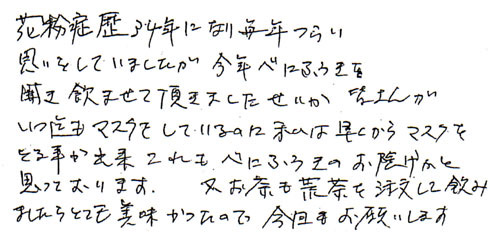 花粉症歴34年になり毎年つらい
思いをしていましたが今年べにふうきを
聞き飲ませて頂きましたせいか 皆さんが
いつ迄もマスクをしているのに私は早くからマスクを
とる事が出来これもべにふうきのお陰げかと
思っております。 又お茶も荒茶を注文して飲み
ましたらとても美味かったので今回もお願いします